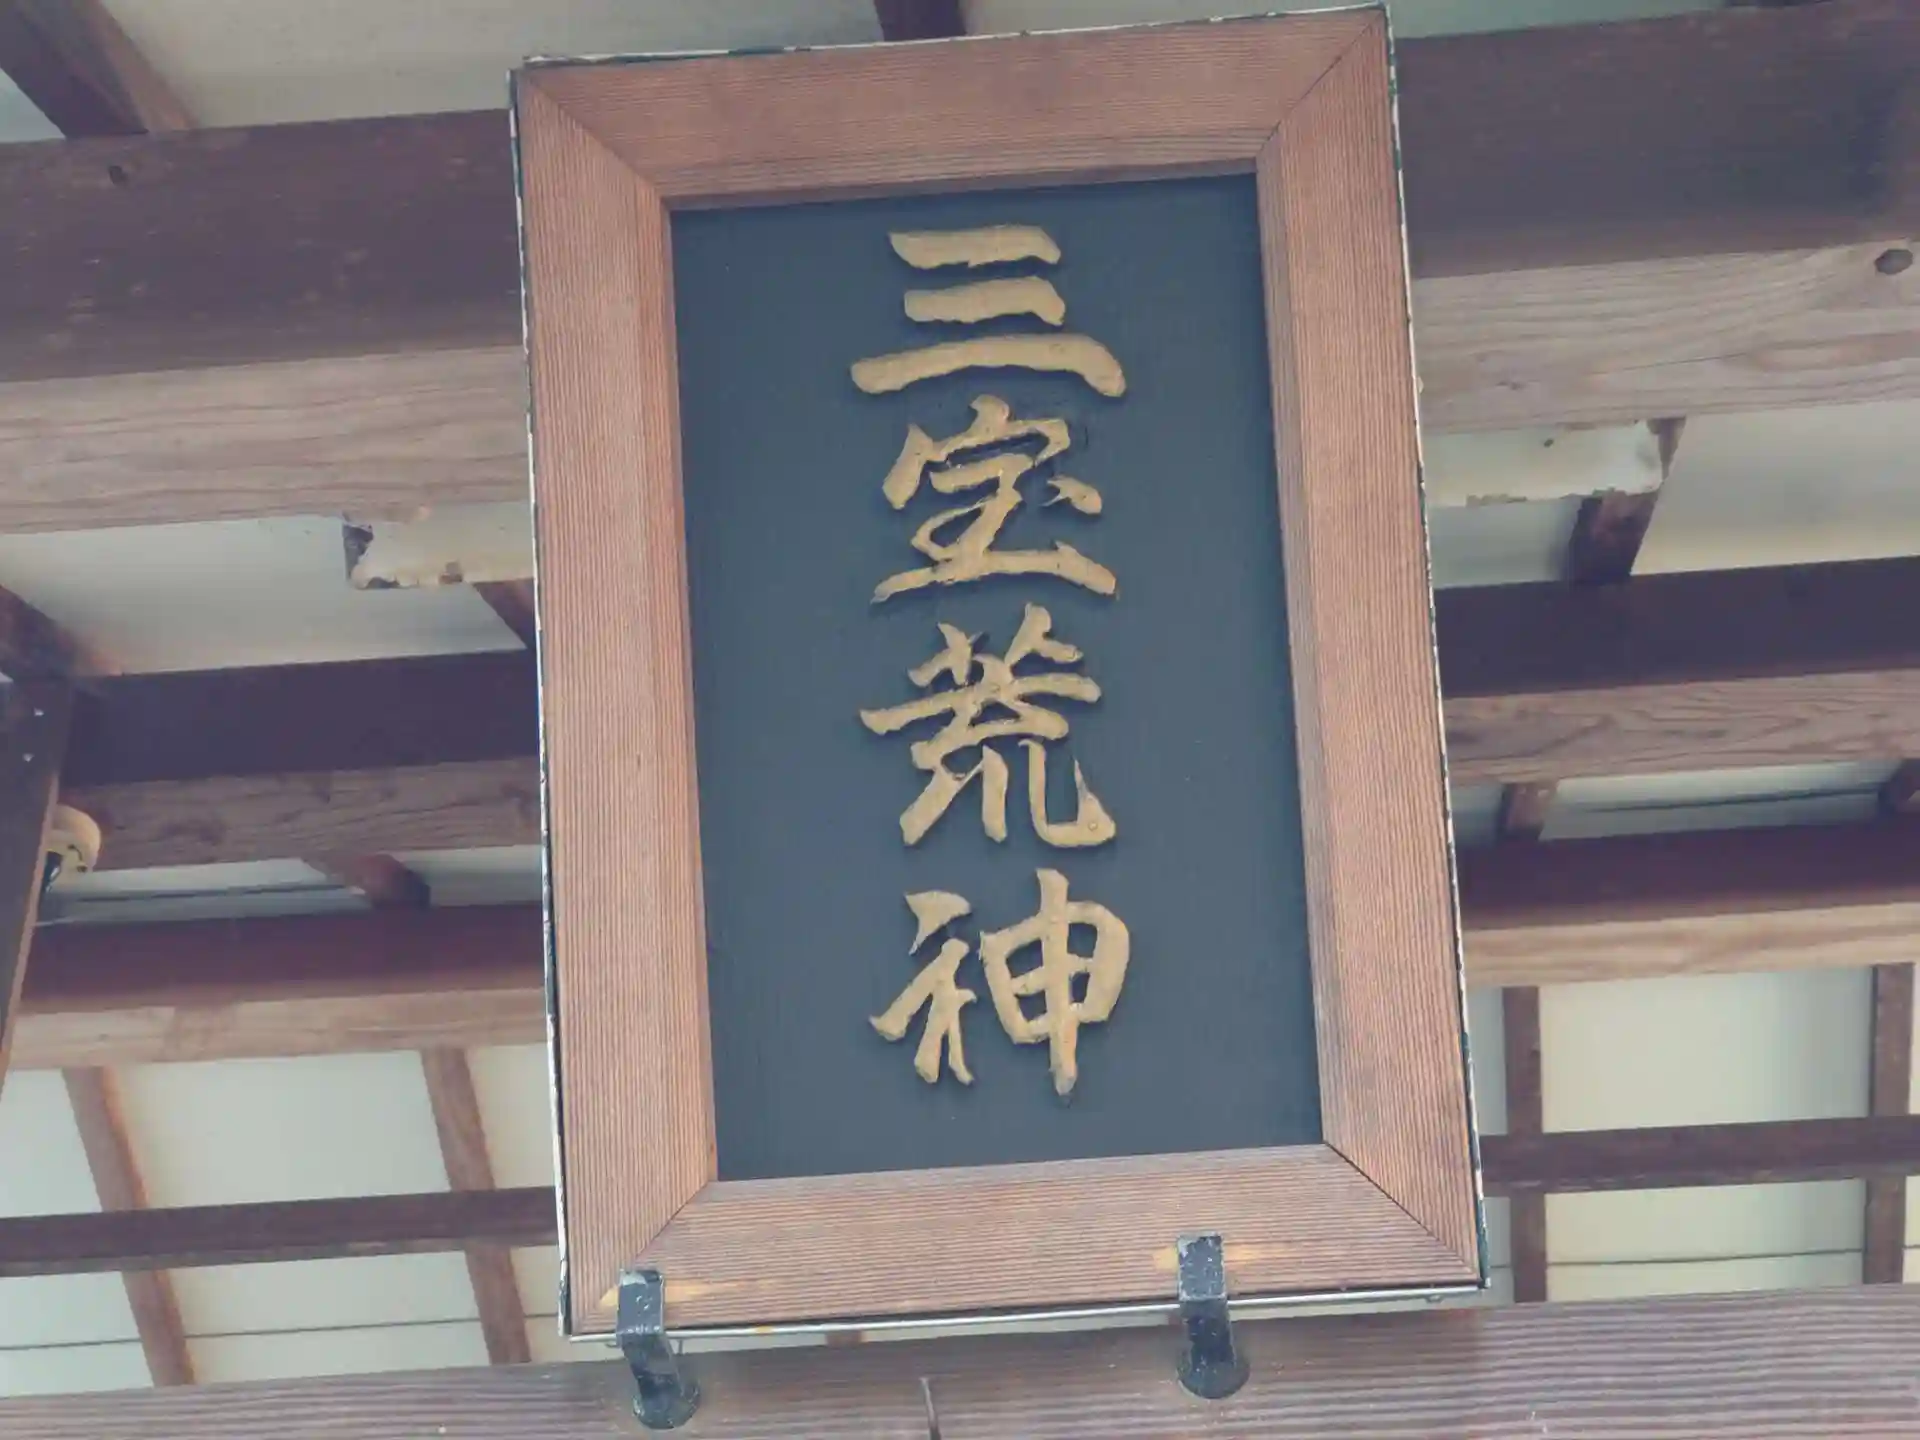 三宝荒神